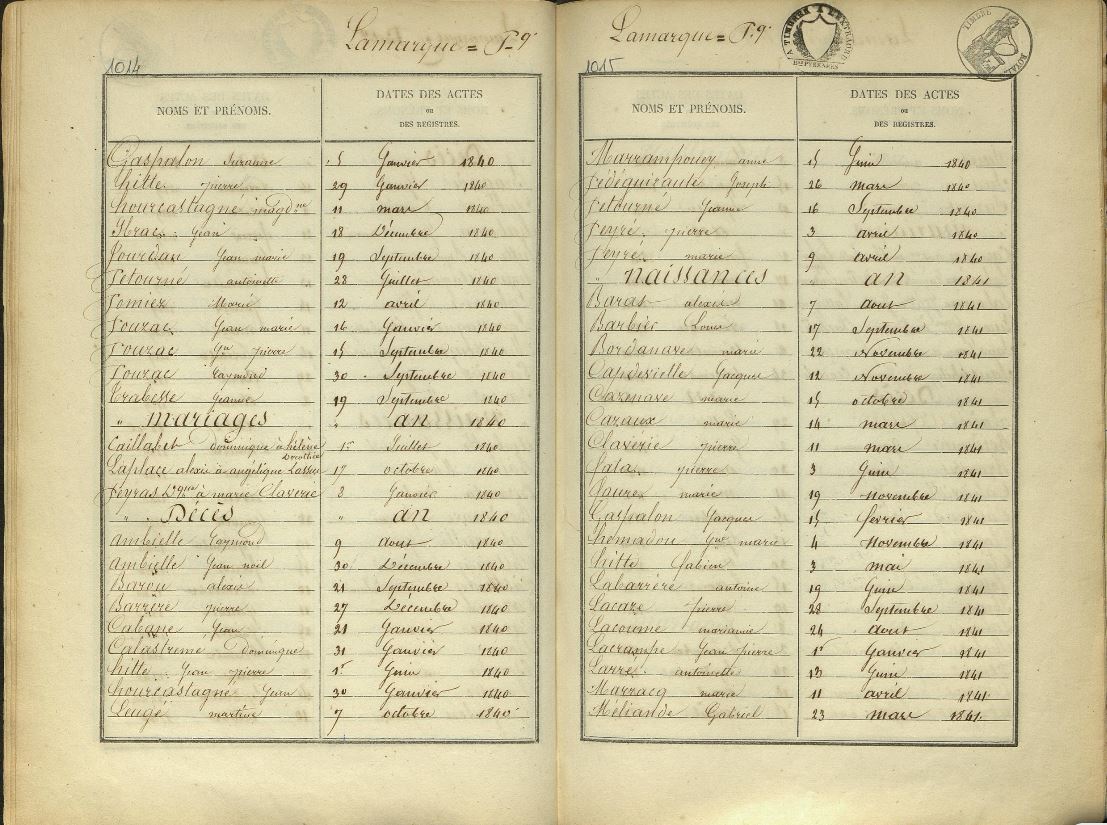 Lamarque = P-9
1014
NOMS ET PRÉNOMS.
DATES DES ACTES
ou
DES REGISTRES.
Gaspalon Suzanne 5 Janvier 1840
hitte pierre 29 Janvier 1840
hourcastagné magd.ne 11 mars 1840
Ibrac Jean 18 Décembre 1840
Jourdan Jean marie 19 Septembre 1840
Petourné antoinette 28 Juillet 1840
Pomiez Marie 12 avril 1840
Pouzac Jean marie 16 Janvier 1840
Pouzac Jn pierre 15 Septembre 1840
Pouzac Raymond 30 Septembre 1840
Trabesse Jeanne 19 Septembre 1840
" mariages " an 1840
Caillabet dominique à hélène
Dorothée 1er Juillet 1840
Laplace alexis à angélique Lassus 17 octobre 1840
Peyras Dque à marie Claverie 8 Janvier 1840
" Décès " an 1840
ambielle Raymond 9 aout 1840
ambielle Jean noël 30 Décembre 1840
Barou alexis 21 Septembre 1840
Barrère pierre 27 Décembre 1840
Cabane Jean 21 Janvier 1840
Calastreme dominique 31 Janvier 1840
hitte Jean pierre 1er Juin 1840
hourcastagné Jean 30 Janvier 1840
Leugé martine 7 octobre 1840
Lamarque = P-9
A TIMBRER A L'EXTRAORD
Htes PYRENÉES
TIMBRE ROYAL
1015
NOMS ET PRÉNOMS.
DATES DES ACTES
ou
DES REGISTRES.
Marrampouey anne 15 Juin 1840
Pédéguiraute Joseph 26 mars 1840
Petourné Jeanne 16 Septembre 1840
Peyré pierre 3 avril 1840
Peyré marie 9 avril 1840
" naissances " an 1841
Baras alexis 7 aout 1841
Barbier Louis 17 Septembre 1841
Bordanave marie 22 Novembre 1841
Capdevielle Jacques 12 Novembre 1841
Cazenave marie 15 octobre 1841
Cazaux marie 14 mars 1841
Claverie pierre 11 mars 1841
pierre 3 Juin 1841
marie 19 Novembre 1841
Gaspalon Jacques 15 février 1841
homadou marie 4 Novembre 1841
hitte fabien 3 mai 1841
Labarrère antoine 19 Juin 1841
Lacaze pierre 28 Septembre 1841
Lacoume marianne 24 aout 1841
Lacrampe Jean pierre 1er Janvier 1841
Larré antoinette 13 Juin 1841
Marzacq marie 11 avril 1841
Méliande Gabriel 23 mars 1841